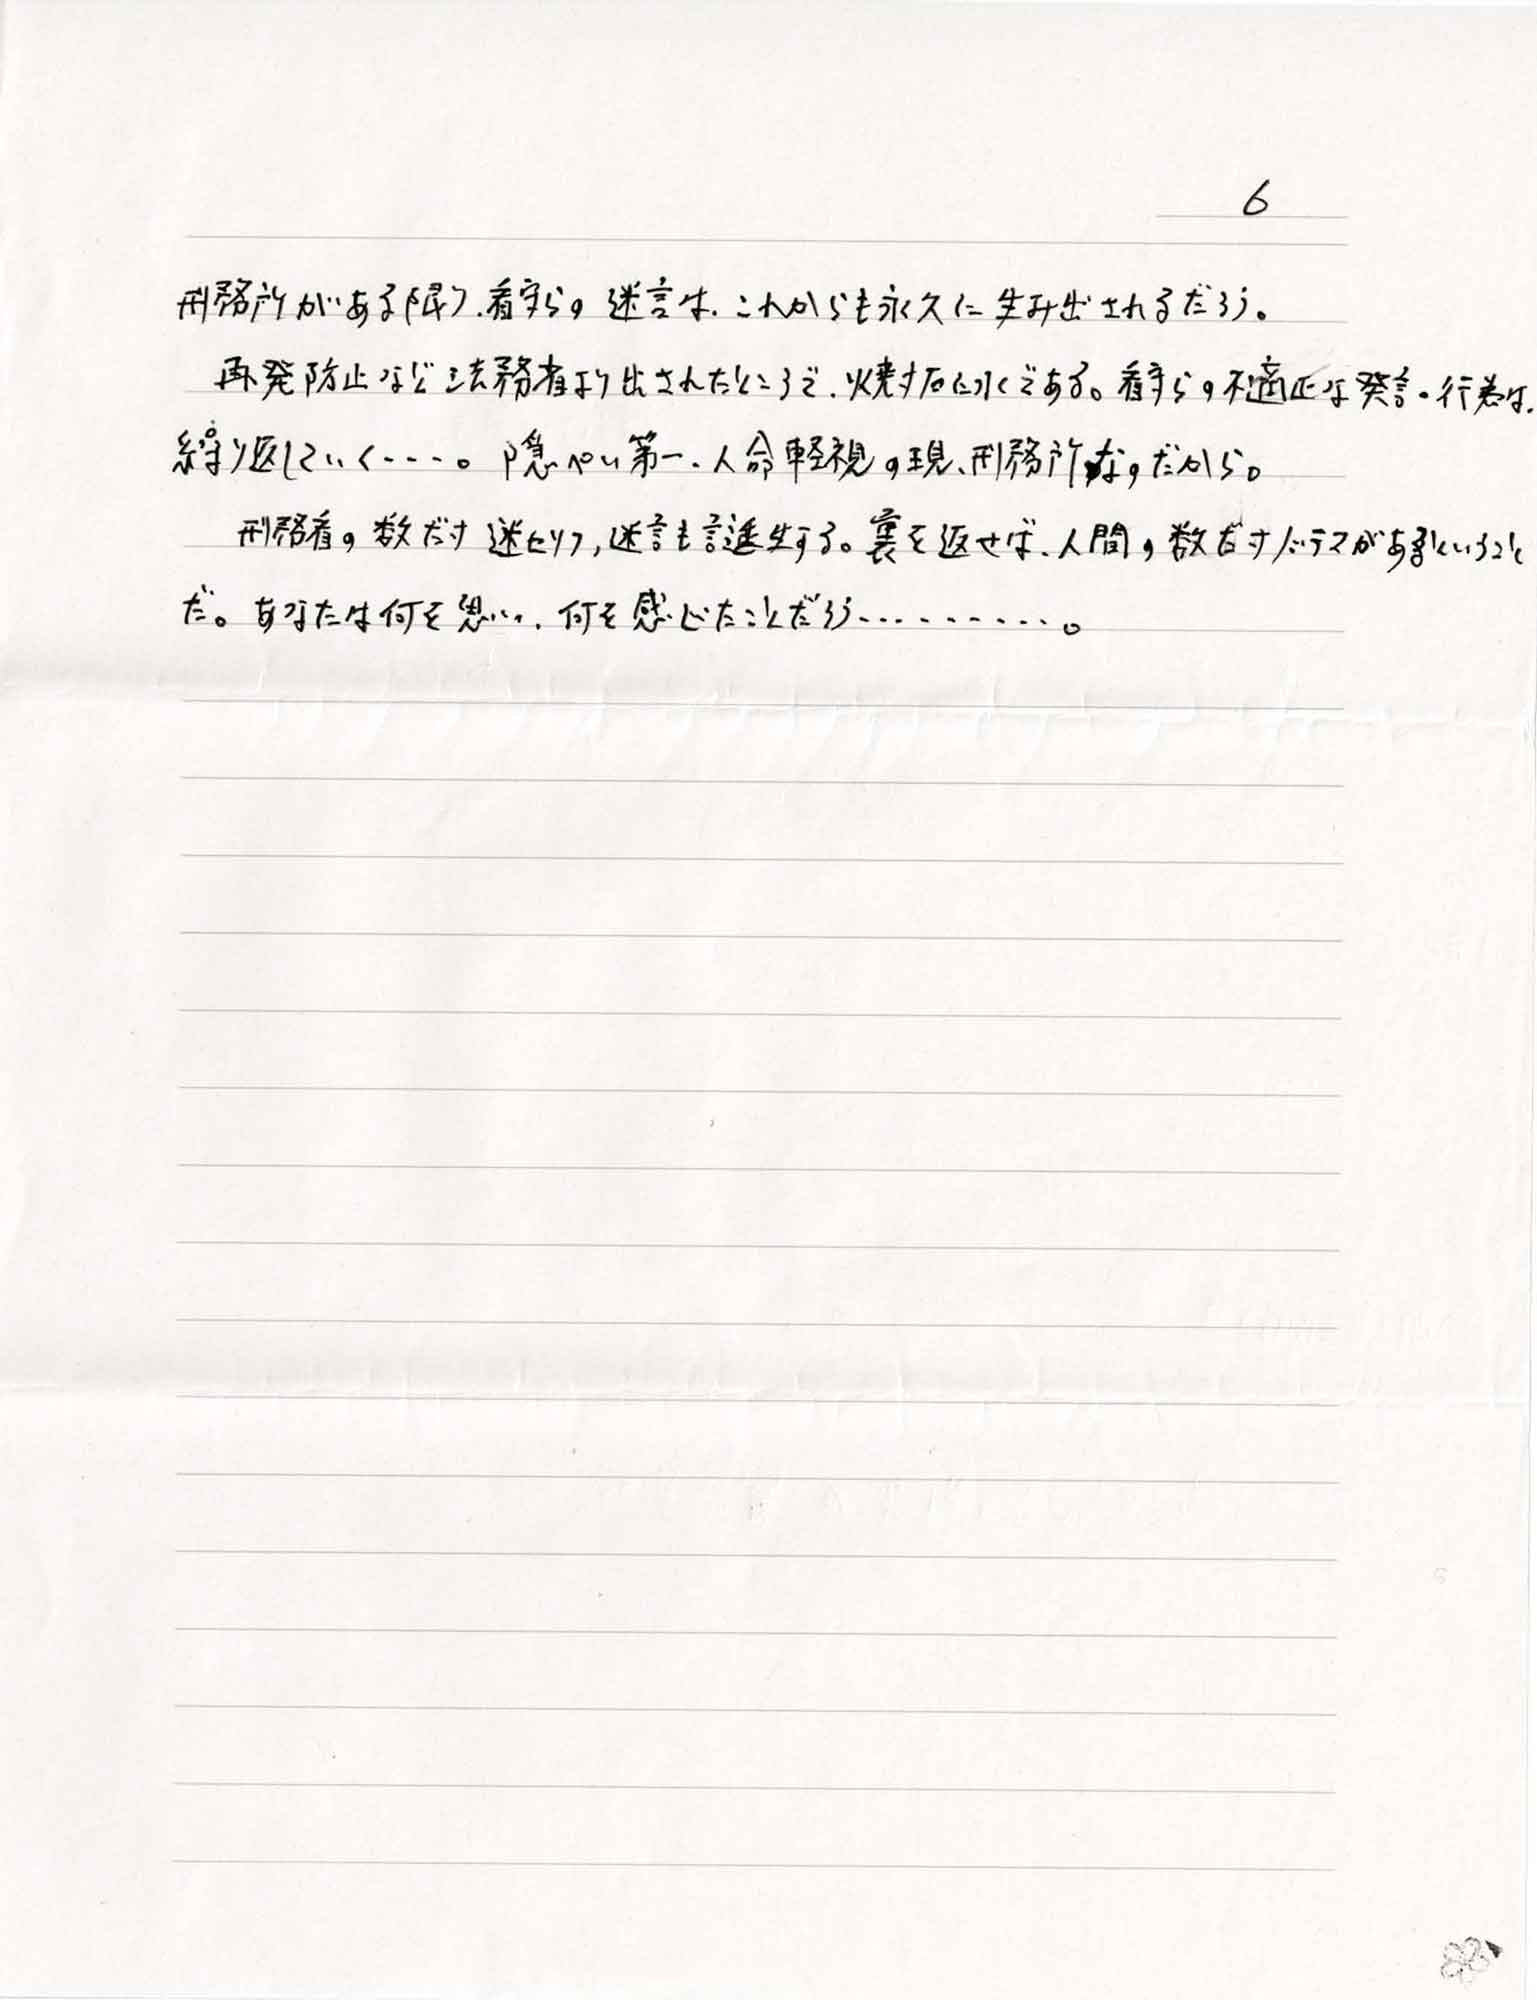 6
刑務所がある限り、看守らの迷言は、これからも永久に生み出されるだろう。
再発防止など法務省より出されたところで、焼け石に水である。看守らの不適正な発言・行為は、
繰り返していく・・・・。隠ぺい第一、人命軽視の現、刑務所なのだから。
刑務者の数だけ迷セリフ,迷言も誕生する。裏を返せば、人間の数だけドラマがあるということ
だ。あなたは何を思い、何を感じたことだろう・・・・・・・・・。